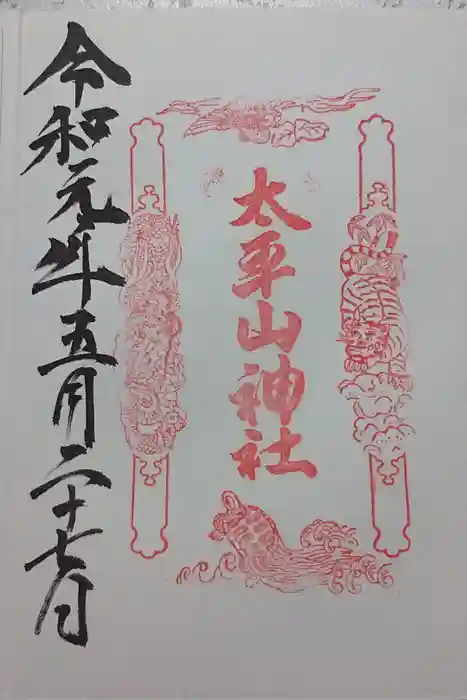 太平山神社
令和元年五月二十七日